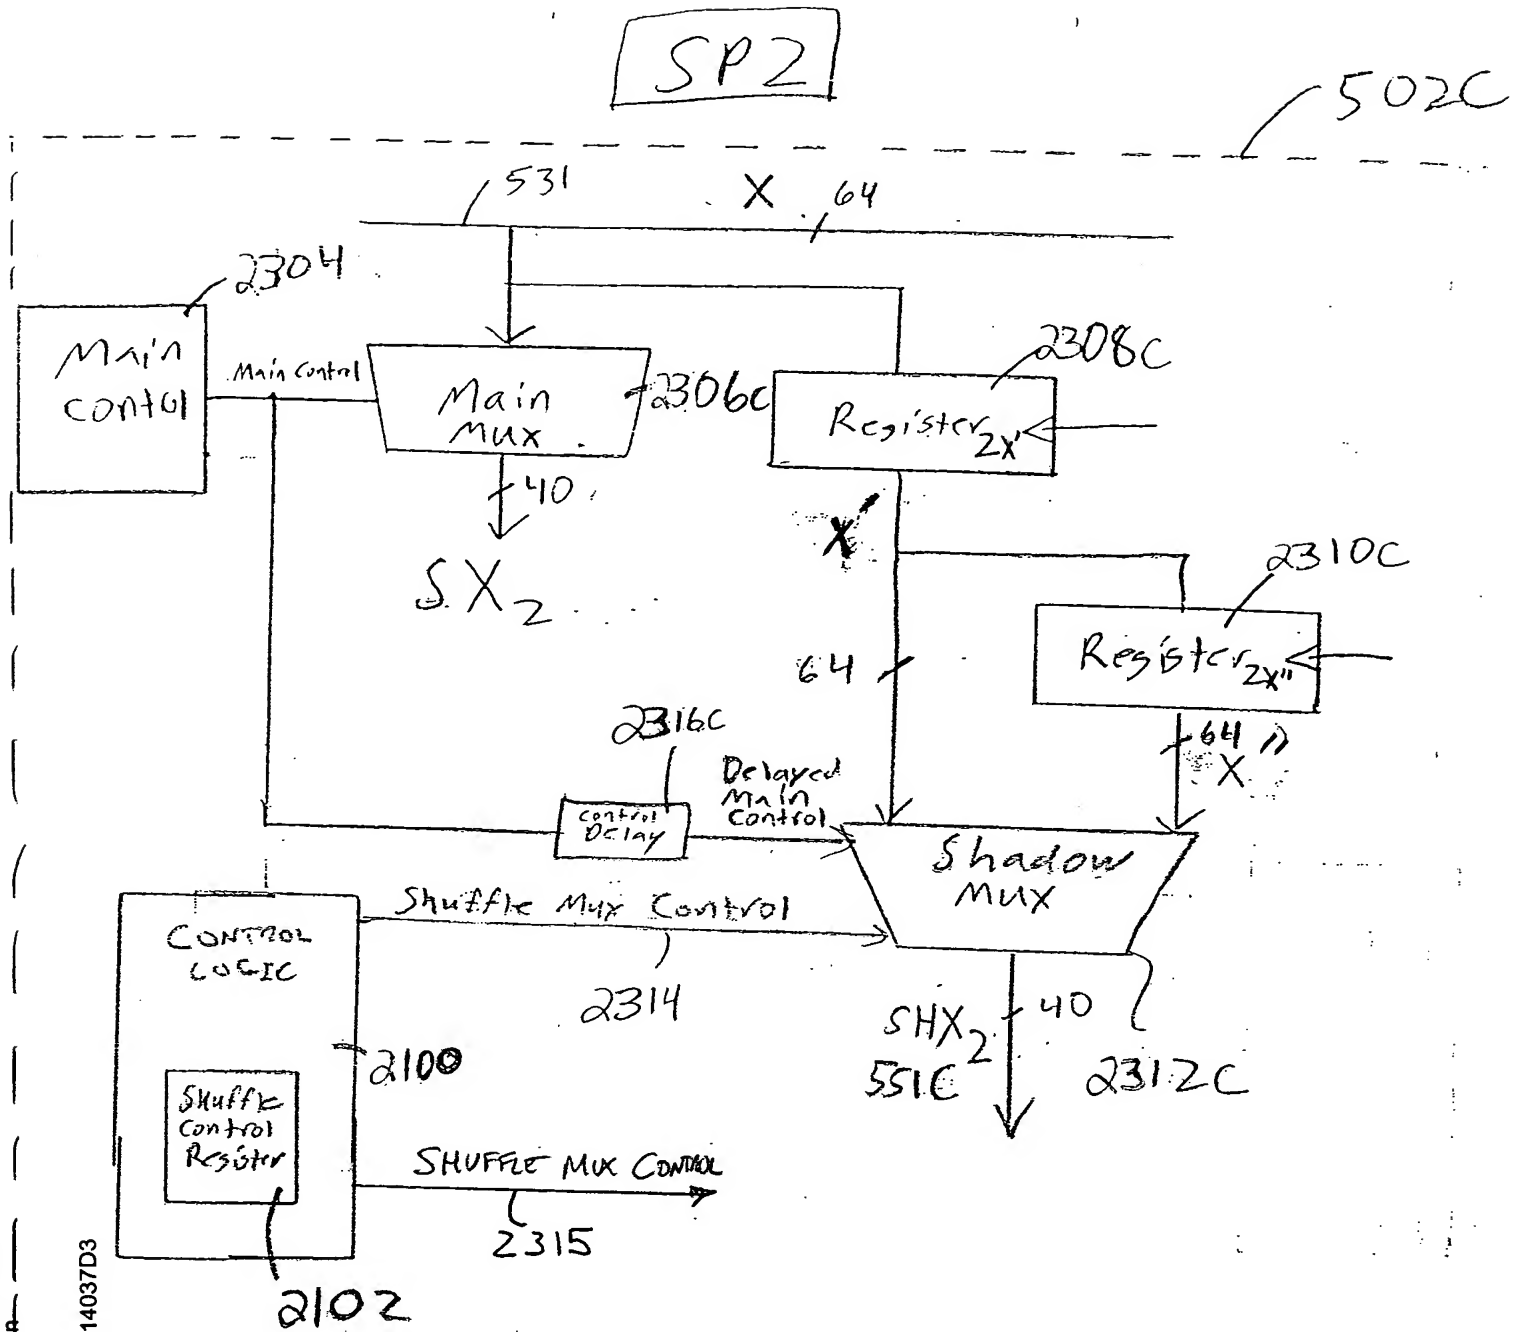 SP2
502C
531
X
64
2304
Main
contol
Main Control
Main
MUX
2306C
40
SX2
2308C
Register2X'
X'
2310C
Register2X"
64
64
X"
2316C
Control
Delay
Delayed
Main
Control
Shadow
MUX
Shuffle Mux Control
2314
CONTROL
LOGIC
2100
Shuffle
Control
Register
2102
SHX2
551C
40
2312C
SHUFFLE MUX CONTROL
2315
14037D3